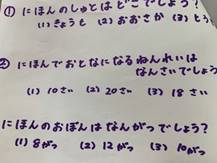 ① にほんのしゅとはどこでしょう?
(1) きょうと (2) おおさか (3) とう
② にほんでおとなになるねんれいは
なんさいでしょう?
(1) 10さい (2) 20さい (3) 18さい
にほんのおぼんはなんがつでしょう?
(1) 8がつ (2) 12がつ (3) 10がつ